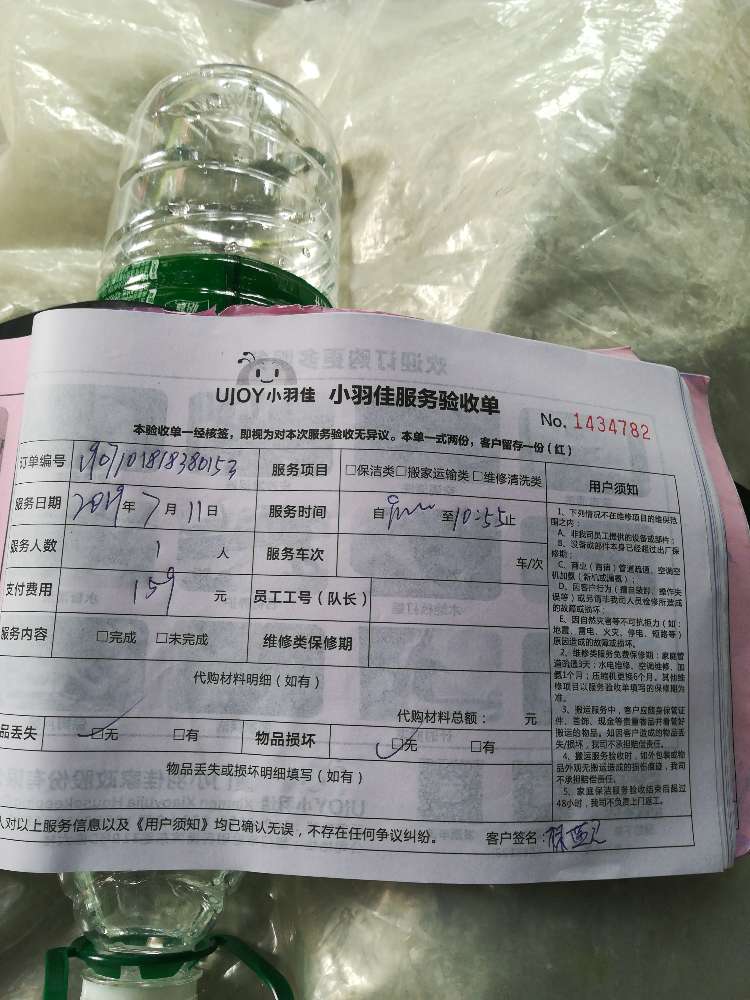 UJOY小羽佳 小羽佳服务验收单
No. 1434782
本验收单一经核签，即视为对本次服务验收无异议。本单一式两份，客户留存一份（红）
订单编号 1907101818380153 服务项目 □保洁类□搬家运输类□维修清洗类 用户须知
服务日期 2019年7月11日 服务时间 自 至10:55止
服务人数 1 人 服务车次 车/次
支付费用 159 元 员工工号（队长）
服务内容 □完成 □未完成 维修类保修期
代购材料明细（如有）
代购材料总额： 元
品丢失 □无 □有 物品损坏 □无 □有
物品丢失或损坏明细填写（如有）
人对以上服务信息以及《用户须知》均已确认无误，不存在任何争议纠纷。 客户签名：
1、下列情况不在维修项目的维保范
围之内：
A、非我司员工提供的设备或部件；
B、设备或部件本身已经超过出厂保
修期；
C、商业（商铺）管道疏通、空调空
机加氨（新机或漏氨）；
D、因客户行为（擅自装卸、操作失
误等）或另请非我司人员检修所造成
的故障或损坏。
E、因自然灾害等不可抗拒力（如：
地震、雷电、火灾、停电、短路等）
原因造成的故障或损坏。
2、维修类服务免费保修期：家庭管
道疏通3天；水电维修、空调维修、加
氨1个月；压缩机更换6个月。其他维
修项目以服务验收单填写的保修期为
准。
3、搬运服务中，客户应随身保管证
件、首饰、现金等贵重物品并看管好
搬运的物品。如因客户造成的物品丢
失/损坏，我司不承担赔偿责任。
4、搬运服务验收时，如外包装或物
品外观无搬运造成的损伤痕迹，我司
不承担赔偿责任。
5、家庭保洁服务验收结束后超过
48小时，我司不负责上门返工。
欢迎订购更多服